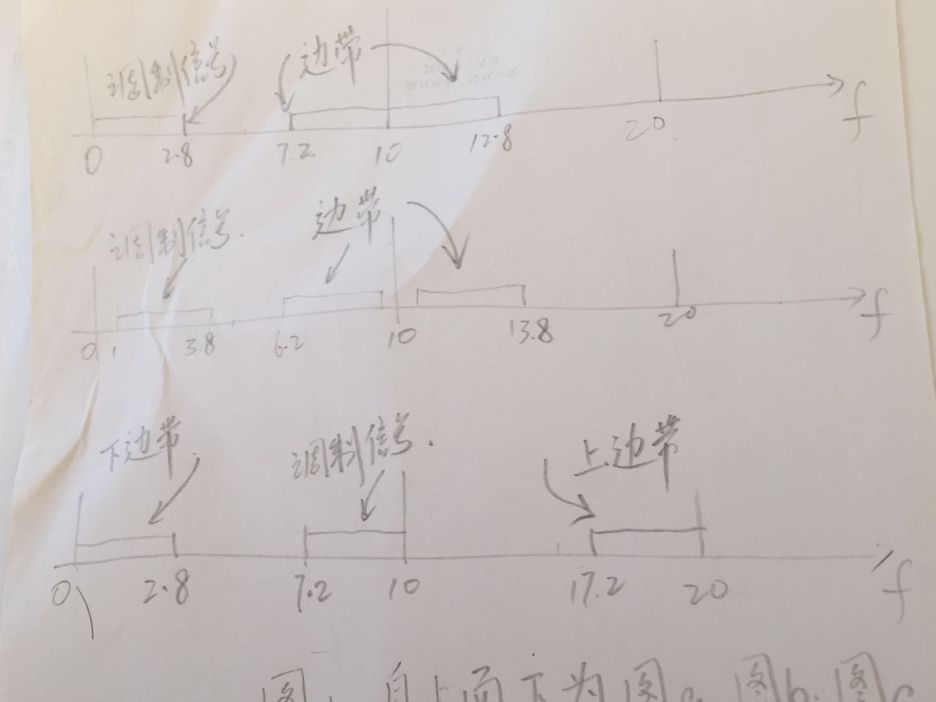 调制信号 边带
0 2.8 7.2 10 12.8 20 f
调制信号. 边带
0 1 3.8 6.2 10 13.8 20 f
下边带 调制信号. 上边带
0 2.8 7.2 10 17.2 20 f
图. 自上而下为图a. 图b. 图c